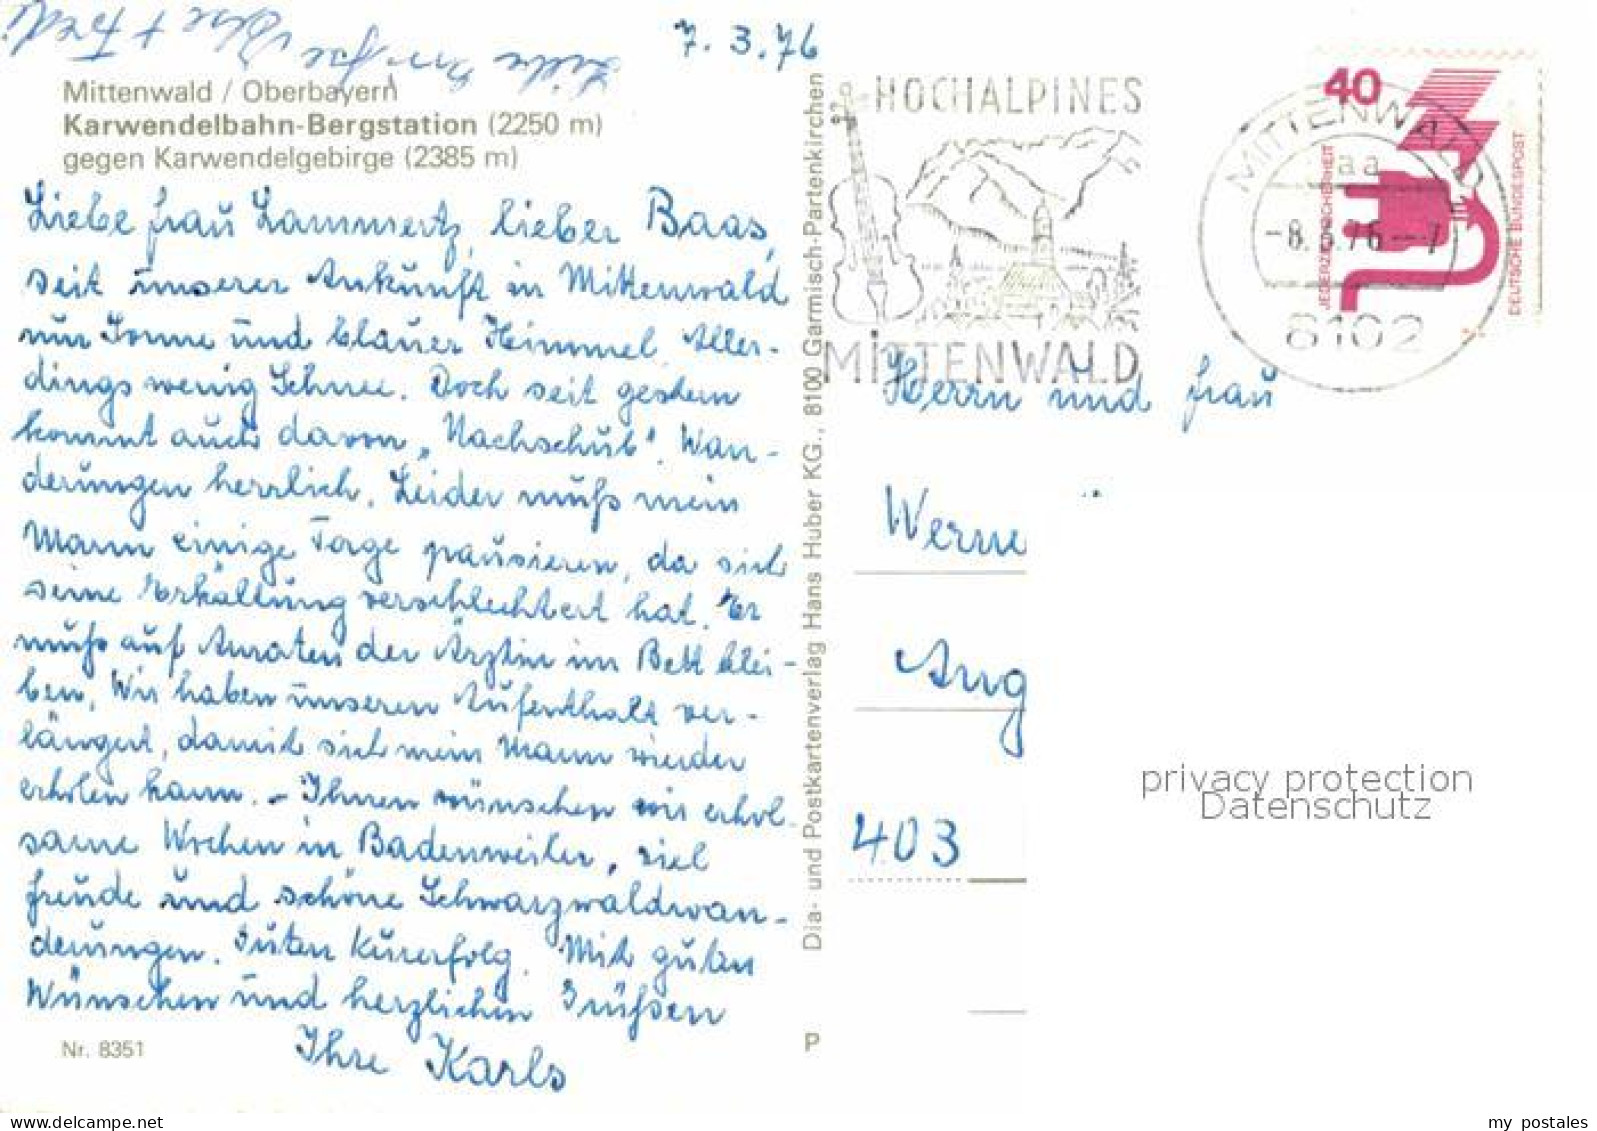 7.3.76
Mittenwald / Oberbayern
Karwendelbahn-Bergstation (2250 m)
gegen Karwendelgebirge (2385 m)
Liebe Frau Lammertz, lieber Baas,
seit unserer Ankunft in Mittenwald
nur Sonne und blauer Himmel. Aller-
dings wenig Schnee. Doch seit gestern
kommt auch davon „Nachschub". Wan-
derungen herrlich. Leider muß mein
Mann einige Tage pausieren, da sich
seine Erkältung verschlechtert hat. Er
muß auf Anraten der Ärztin im Bett blei-
ben. Wir haben unseren Aufenthalt ver-
längert, damit sich mein Mann wieder
erholen kann. – Ihnen wünschen wir erhol-
same Wochen in Badenweiler, viel
Freude und schöne Schwarzwaldwan-
derungen. Guten Kurerfolg. Mit guten
Wünschen und herzlichen Grüßen
Ihre Karls
Nr. 8351
Dia- und Postkartenverlag Hans Huber KG., 8100 Garmisch-Partenkirchen
P
HOCHALPINES
MITTENWALD
MITTENWALD
aa
-8.3.76--7
8102
40
JEDERZEIT SICHERHEIT
DEUTSCHE BUNDESPOST
Herrn und Frau
Werne
Aug
403
privacy protection
Datenschutz
my postales